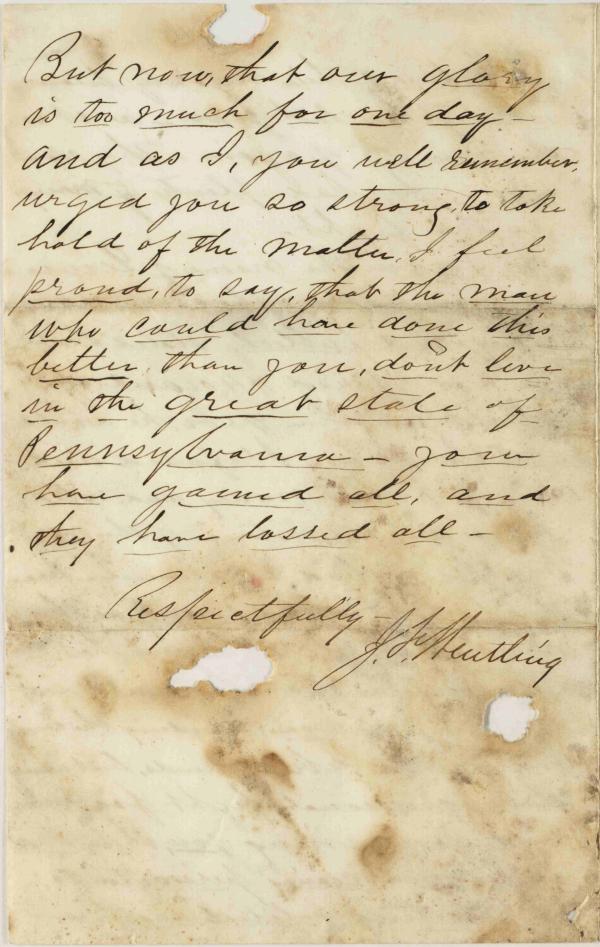 But now, that our glory
is too much for one day –
and as I, you well remember,
urged you so strong, to take
hold of the matter, I feel
proud, to say, that the man
who could have done this
better, than you, don't live
in the great state of
Pennsylvania – you
have gained all, and
they have lossed all –
Respectfully
J.